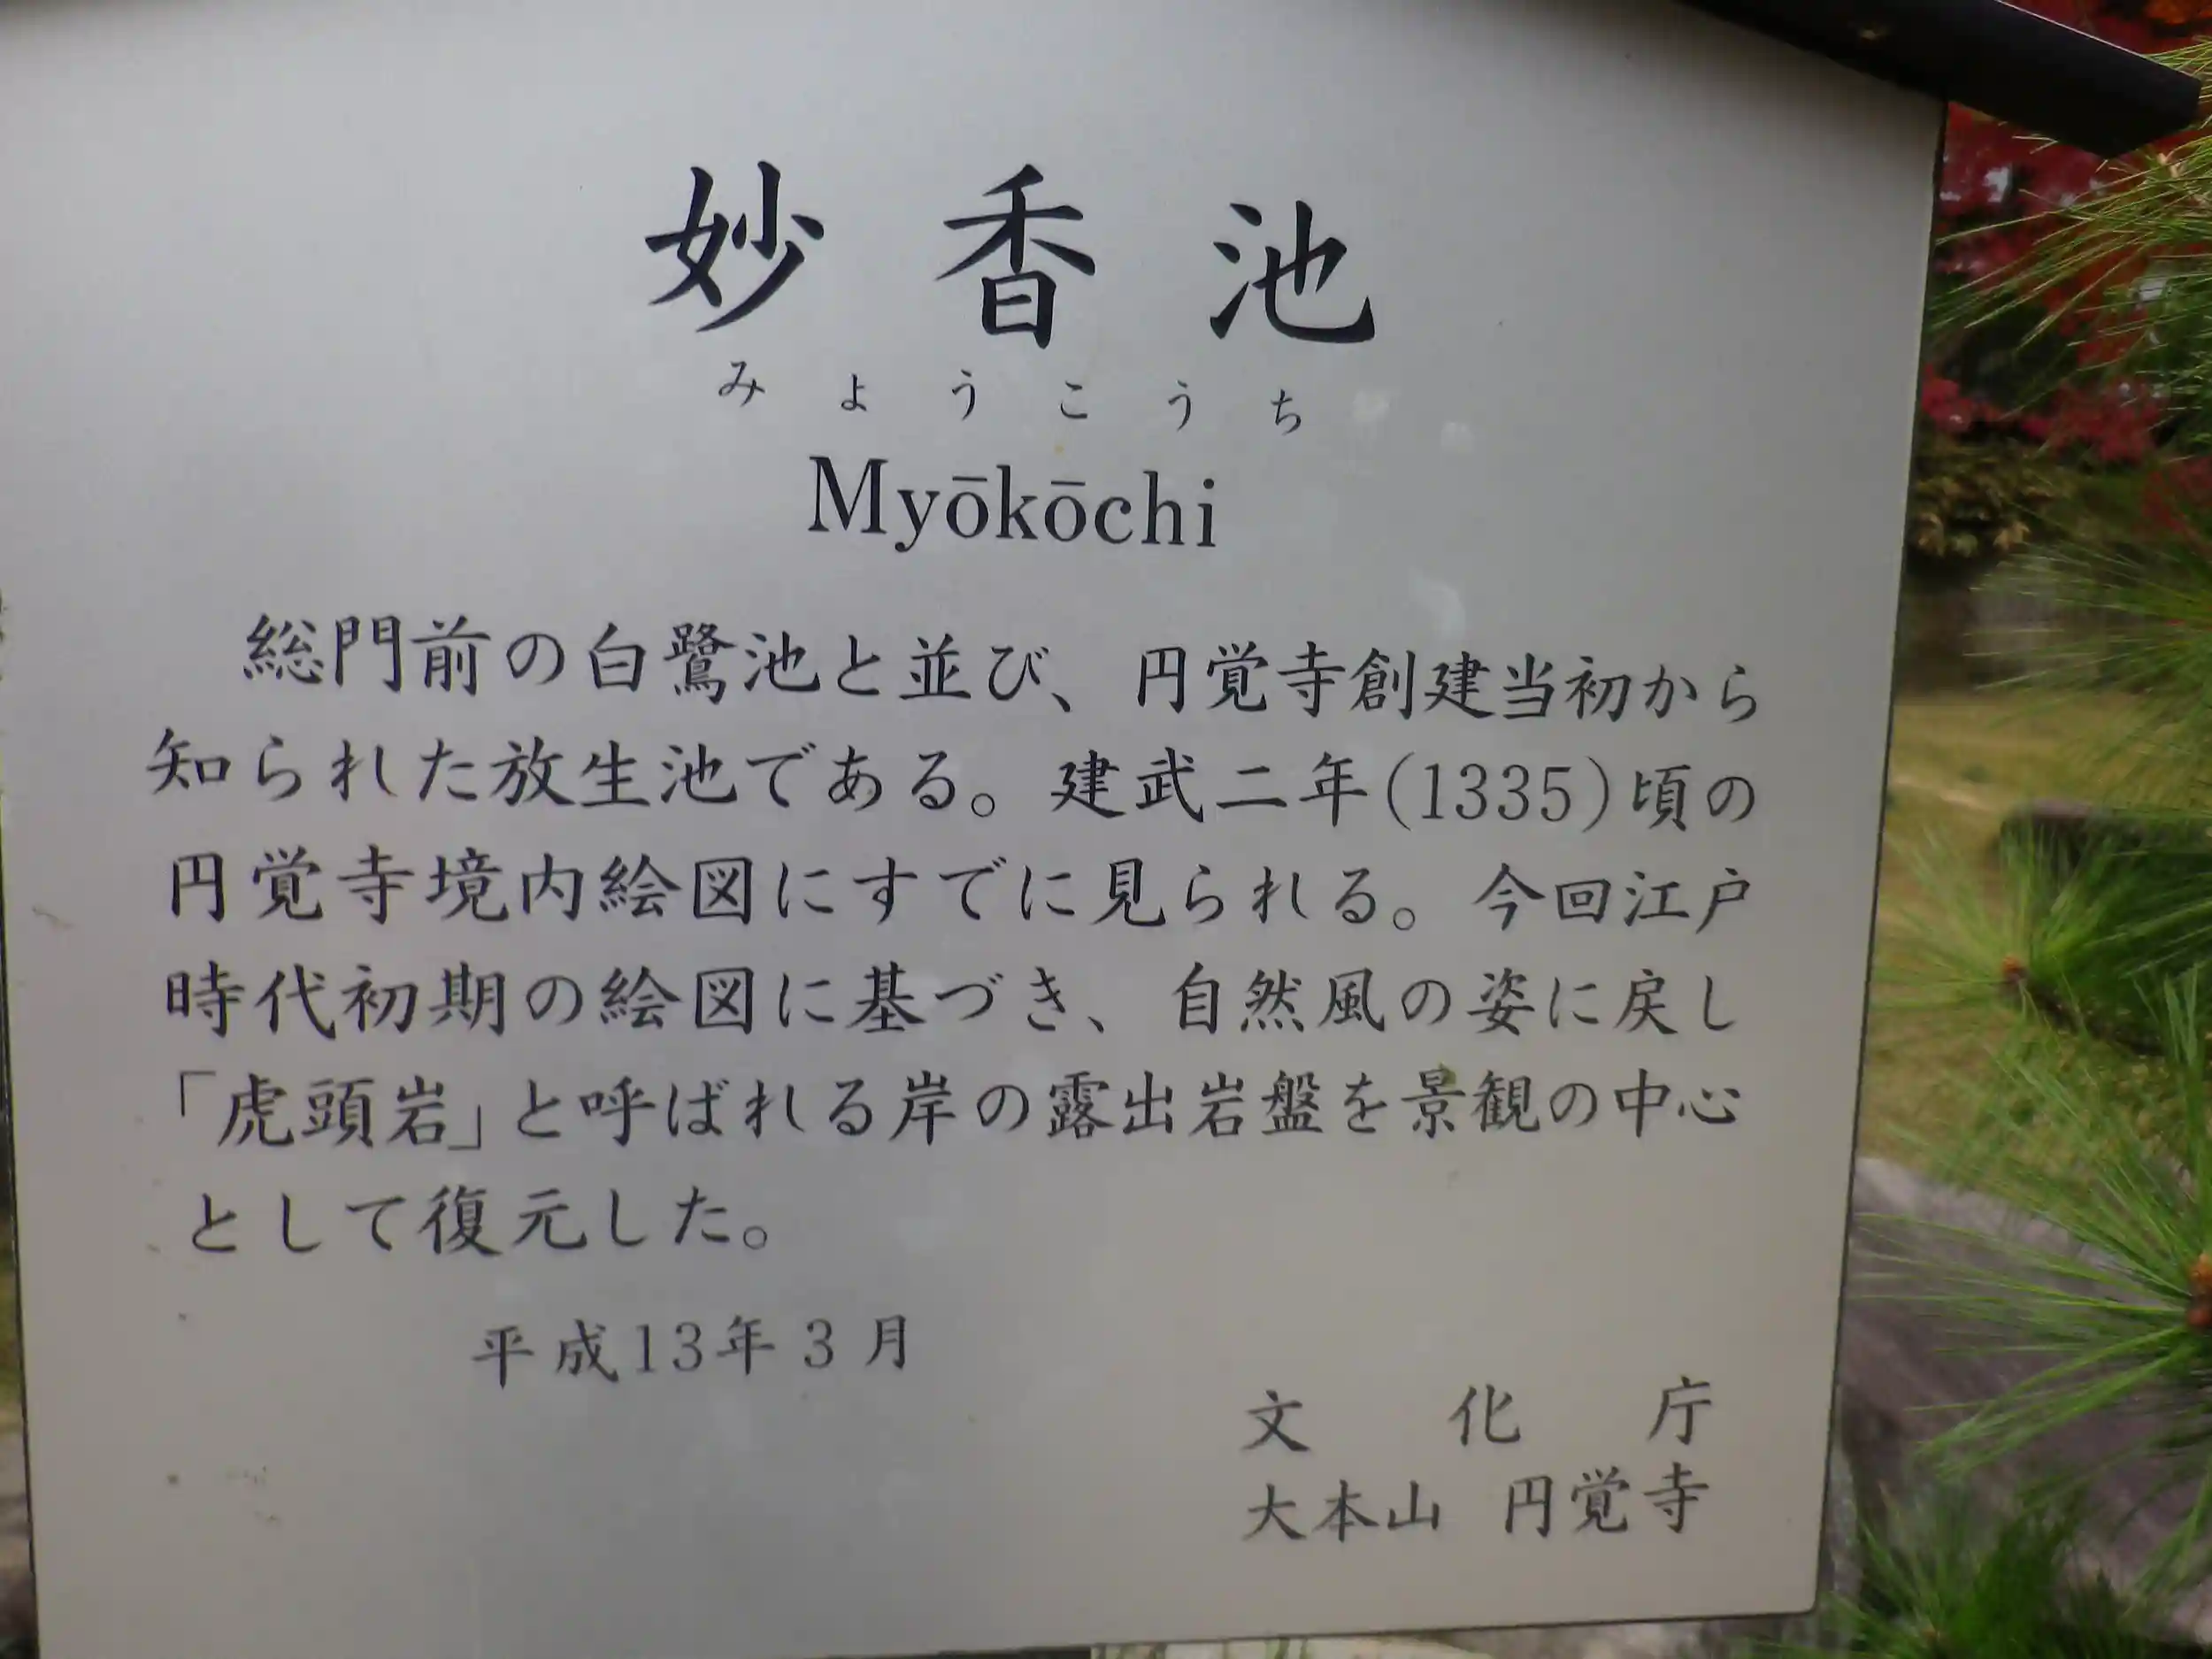 妙香池
みょうこうち
Myōkōchi
総門前の白鷺池と並び、円覚寺創建当初から
知られた放生池である。建武二年(1335)頃の
円覚寺境内絵図にすでに見られる。今回江戸
時代初期の絵図に基づき、自然風の姿に戻し
「虎頭岩」と呼ばれる岸の露出岩盤を景観の中心
として復元した。
平成13年3月
文化庁
大本山 円覚寺